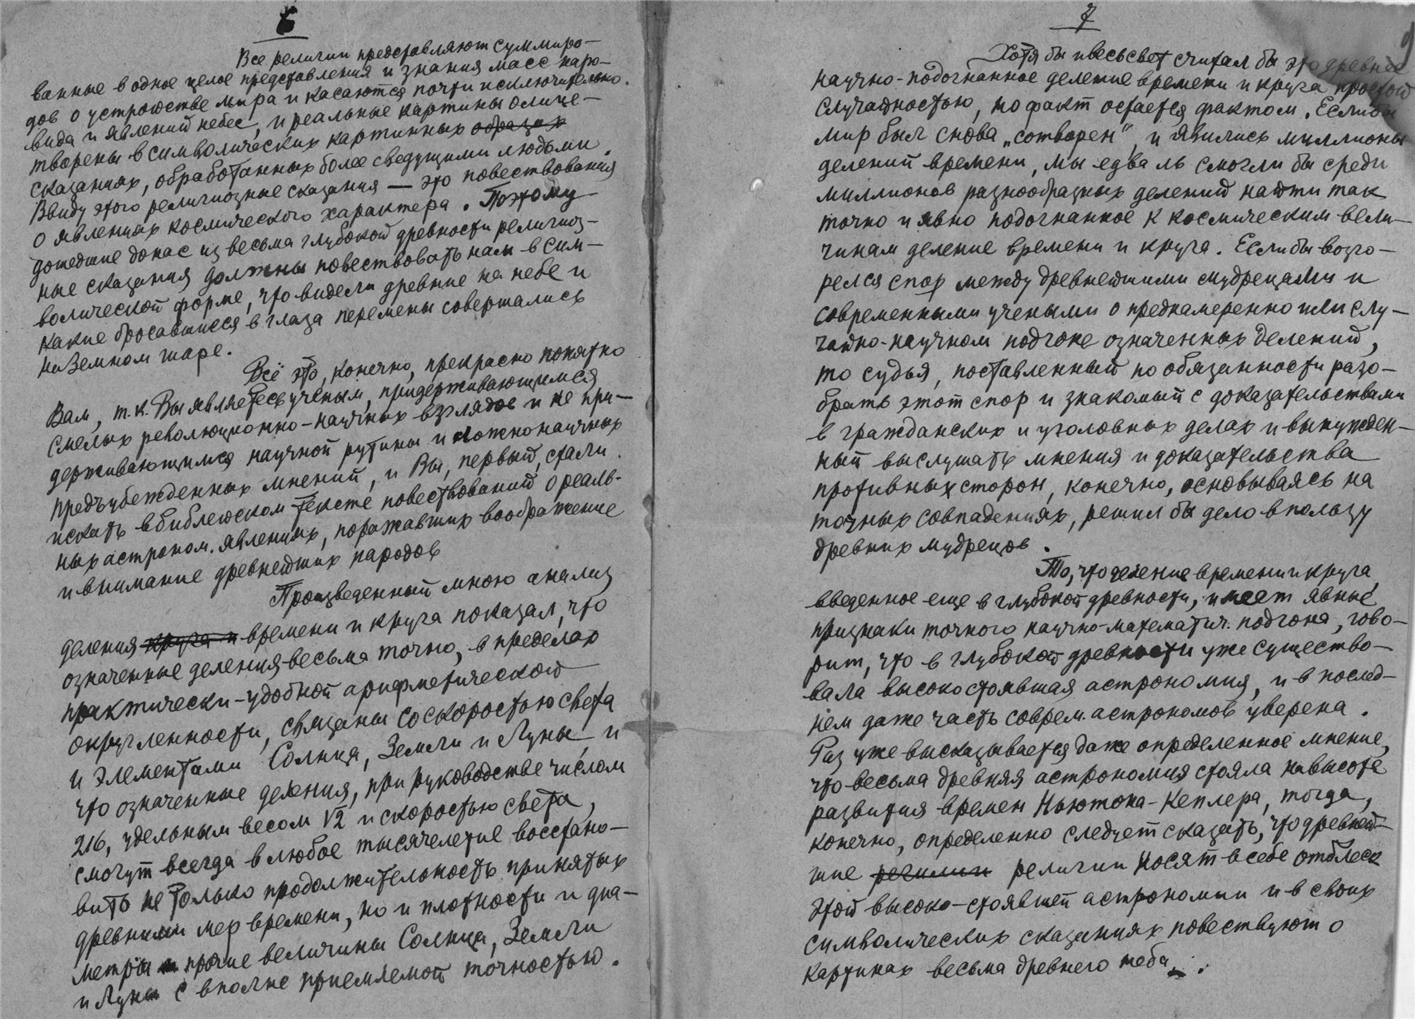 6
Все религии представляют суммиро-
ванные в одное целое представления и знания масс наро-
дов о устройстве мира и касаются почти исключительно
вида и явлений небес, и реальные картины олице-
творены в символических картинных образах
сказаниях, обработанных более сведущими людьми.
Ввиду этого религиозные сказания — это повествования
о явлениях космического характера. Поэтому
дошедшие до нас из весьма глубокой древности религиоз-
ные сказания должны повествовать нам в сим-
волической форме, что видели древние на небе и
какие бросавшиеся в глаза перемены совершались
на Земном шаре.
Всё это, конечно, прекрасно понятно
Вам, т.к. Вы являетесь учёным, придерживающимся
смелых революционно-научных взглядов и не при-
держивающимся научной рутины и ложнонаучных
предъубежденных мнений, и Вы, первый, стали
искать в библейском тексте повествований о реаль-
ных астроном. явлениях, поражавших воображение
и внимание древнейших народов
Произведенный мною анализ
деления круга и времени и круга показал, что
означенные деления весьма точно, в пределах
практически-удобной арифметической
округленности, связаны со скоростью света
и элементами Солнца, Земли и Луны, и
что означенные деления, при руководстве числом
216, удельным весом √2 и скоростью света,
смогут всегда в любое тысячелетие восстано-
вить не только продолжительность принятых
древними мер времени, но и плотности и диа-
метры и прочие величины Солнца, Земли
и Луны с вполне приемлемой точностью.
7
Хотя бы и весь свет считал бы это древнее
научно-подогнанное деление времени и круга простой
случайностью, но факт остается фактом. Если бы
мир был снова „сотворен“, и явились миллионы
делений времени, мы едва ль смогли бы среди
миллионов разнообразных делений найти так
точно и явно подогнанное к космическим вели-
чинам деление времени и круга. Если бы возго-
релся спор между древнейшими мудрецами и
современными учеными о преднамеренно или слу-
чайно-научном подгоне означенных делений,
то судья, поставленный по обязанности разо-
брать этот спор и знакомый с доказательствами
в гражданских и уголовных делах и вынужден-
ный выслушать мнения и доказательства
противных сторон, конечно, основываясь на
точных совпадениях, решил бы дело в пользу
древних мудрецов.
То, что деление времени и круга,
введенное еще в глубокой древности, имеет явные
признаки точного научно-математич. подгона, гово-
рит, что в глубокой древности уже существо-
вала высокостоявшая астрономия, и в послед-
нем даже часть соврем. астрономов уверена.
Раз уже высказывается даже определенное мнение,
что весьма древняя астрономия стояла на высоте
развития времен Ньютона-Кеплера, тогда,
конечно, определенно следует сказать, что древней-
шие регилии религии носят в себе отблеск
этой высоко-стоявшей астрономии и в своих
символических сказаниях повествуют о
картинах весьма древнего неба.